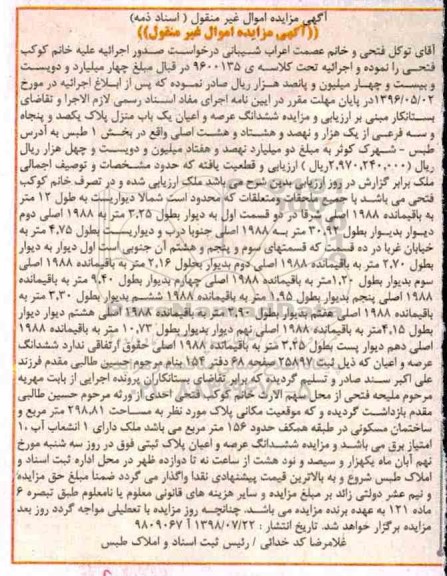 آگهی مزایده اموال غیر منقول ( اسناد ذمه)
((آگهی مزایده اموال غیر منقول))
آقای توکل فتحی و خانم عصمت اعراب شیبانی درخواست صدور اجرائیه علیه خانم کوکب
فتحی را نموده و اجرائیه تحت کلاسه ی ۹۶۰۰۱۳۵ در قبال مبلغ چهار میلیارد و دویست
و بیست و چهار میلیون و پانصد هزار ریال صادر نموده که پس از ابلاغ اجرائیه در مورخ
۱۳۹۶/۰۵/۰۲در پایان مهلت مقرر در آیین نامه اجرای مفاد اسناد رسمی لازم الاجرا و تقاضای
بستانکار مبنی بر ارزیابی و مزایده ششدانگ عرصه و اعیان یک باب منزل پلاک یکصد و پنجاه
و سه فرعی از یک هزار و نهصد و هشتاد و هشت اصلی واقع در بخش ۱ طبس به آدرس
طبس - شهرک کوثر به مبلغ دو میلیارد نهصد و هفتاد میلیون و دویست و چهل هزار ریال
(۲،۹۷۰،۲۴۰،۰۰۰ریال ) ارزیابی و قطعیت یافته که حدود مشخصات و توصیف اجمالی
ملک برابر گزارش در روز ارزیابی بدین شرح می باشد ملک ارزیابی شده و در تصرف خانم کوکب
فتحی می باشد با جمیع ملحقات ومتعلقات که محدود است شمالا دیواریست به طول ۱۲ متر
به باقیمانده ۱۹۸۸ اصلی شرقا در دو قسمت اول به دیوار بطول ۳،۲۵ متر به ۱۹۸۸ اصلی دوم
دیوار بدیوار بطول ۳۰،۹۳ متر به ۱۹۸۸ اصلی جنوبا درب و دیواریست بطول ۴،۷۵ متر به
خیابان غربا در ده قسمت که قسمتهای سوم و پنجم و هشتم آن جنوبی است اول دیوار به دیوار
بطول ۲،۷۰ متر به باقیمانده ۱۹۸۸ اصلی دوم بدیوار بطول ۲،۱۶ متر به باقیمانده ۱۹۸۸ اصلی
سوم بدیوار بطول ۱،۲۰متر به باقیمانده ۱۹۸۸ اصلی چهارم بدیوار بطول ۹،۴۰ متر به باقیمانده
۱۹۸۸ اصلی پنجم بدیوار بطول ۱،۹۵ متر به باقیمانده ۱۹۸۸ ششم بدیوار بطول ۳،۳۰ متر به
باقیمانده ۱۹۸۸ اصلی هفتم بدیوار بطول ۲،۹۰ متر به باقیمانده ۱۹۸۸ اصلی هشتم دیوار دیوار
بطول ۴،۱۵متر به باقیمانده ۱۹۸۸ اصلی نهم دیوار بدیوار بطول ۱۰،۷۳ متر به باقیمانده ۱۹۸۸
اصلی دهم دیوار پست بطول ۳،۴۵ متر به باقیمانده ۱۹۸۸ اصلی حقوق ارتفاقی ندارد ششدانگ
عرصه و اعیان که ذیل ثبت ۲۵۸۹۷ صفحه ۶۸ دفتر ۱۵۴ بنام مرحوم حسین طالبی مقدم فرزند
علی اکبر سند صادر و تسلیم گردیده که برابر تقاضای بستانکاران پرونده اجرایی از بابت مهریه
مرحوم ملیحه فتحی از محل سهم الارث خانم کوکب فتحی احدی از ورثه مرحوم حسین طالبی
مقدم بازداشت گردیده و که موقعیت مکانی پلاک مورد نظر به مساحت ۲۹۸،۸۱ متر مربع و
ساختمان مسکونی در طبقه همکف حدود ۱۵۶ متر مربع می باشد ملک دارای ۱ انشعاب آب ،۱
امتیاز برق می باشد و مزایده ششدانگ عرصه و اعیان پلاک ثبتی فوق در روز سه شنبه مورخ
نهم آبان ماه یکهزار و سیصد و نود هشت از ساعت نه تا دوازده ظهر در محل اداره ثبت اسناد و
املاک طبس شروع و به بالاترین قیمت پیشنهادی نقدا واگذار می گردد ضمنا مبلغ حق مزایده
و نیم عشر دولتی زائد بر مبلغ مزایده و سایر هزینه های قانونی معلوم یا نامعلوم طبق تبصره ۶
ماده ۱۲۱ به عهده برنده مزایده می باشد. چنانچه روز مزایده با تعطیلی مواجه گردد روز بعد
مزایده برگزار خواهد شد. تاریخ انتشار : ۱۳۹۸/۰۷/۲۲ آ ۹۸۰۹۰۶۷
غلامرضا کد خدائی / رئیس ثبت اسناد و املاک طبس